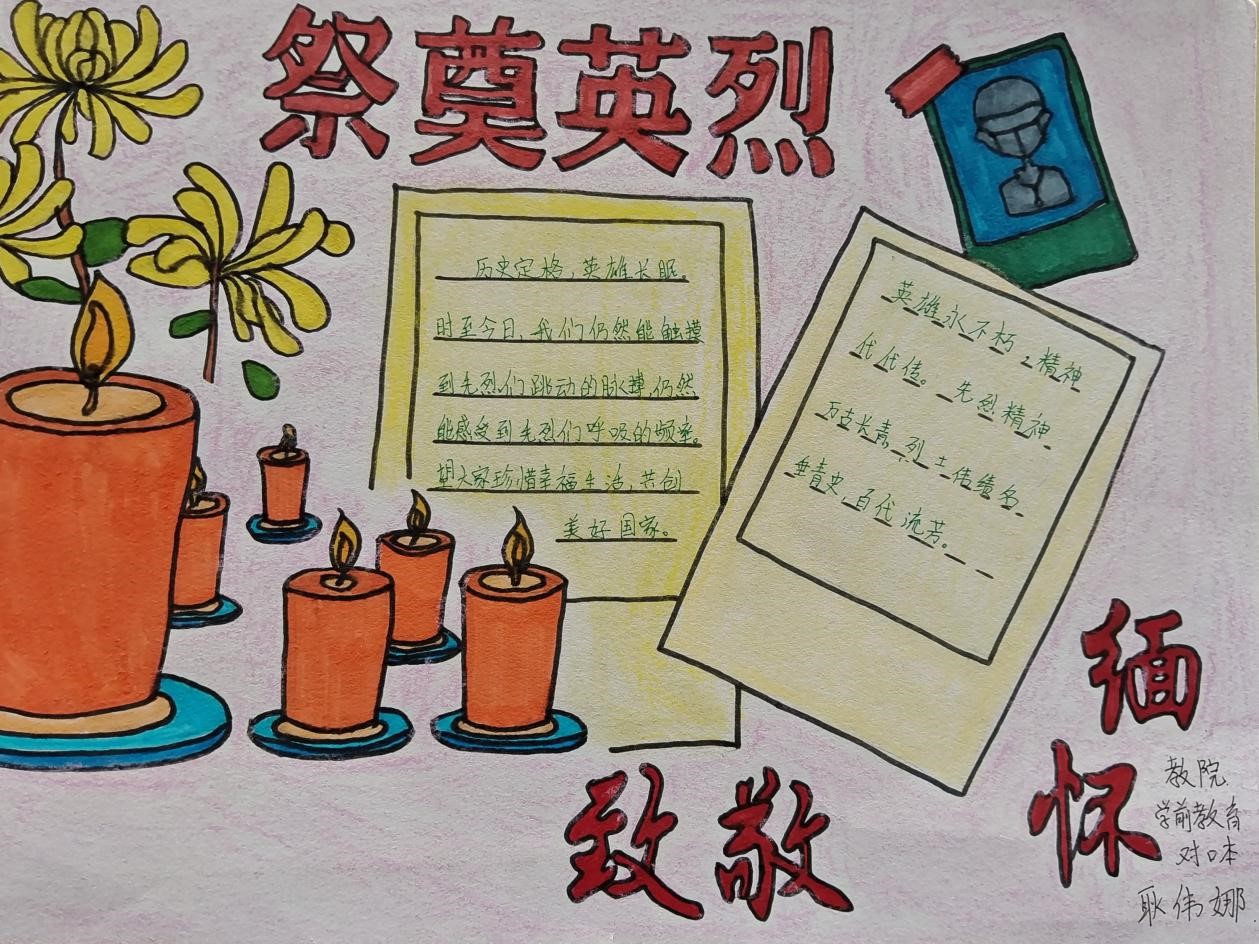 祭奠英烈
历史定格，英雄长眠。
时至今日，我们仍然能触摸
到先烈们跳动的脉搏，仍然
能感受到先烈们呼吸的频率。
望大家珍惜幸福生活，共创
美好国家。
英雄永不朽，精神
代代传。先烈精神
万支长青，烈士伟绩名
垂青史，百代流芳。
缅怀
致敬
教院
学前教育
对口本
耿伟娜